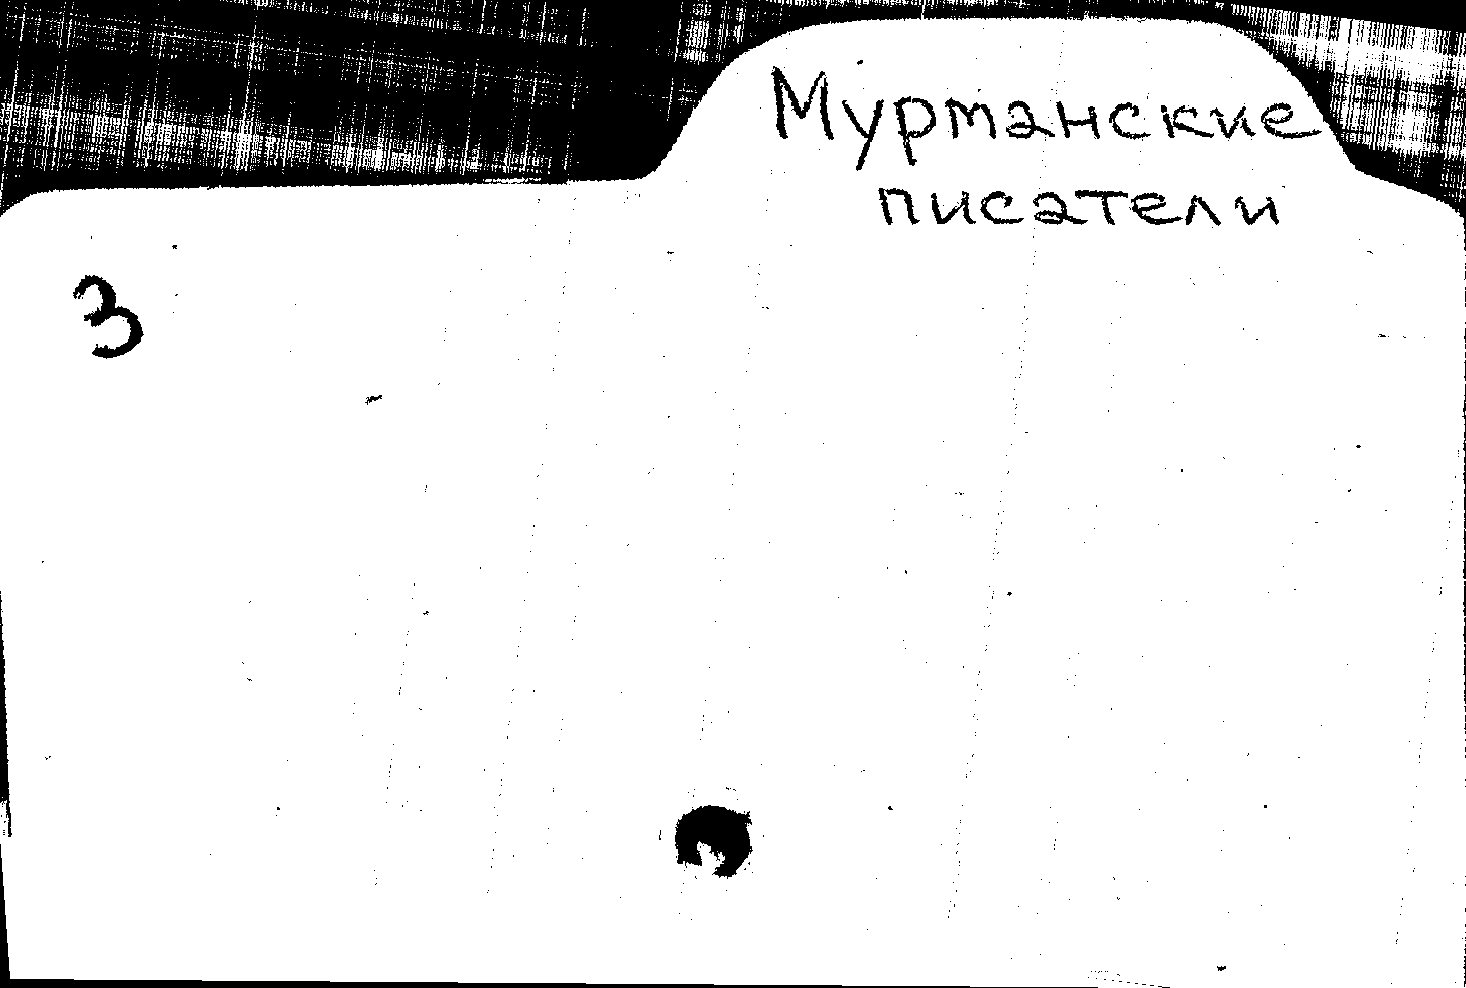 Мурманские
писатели
3